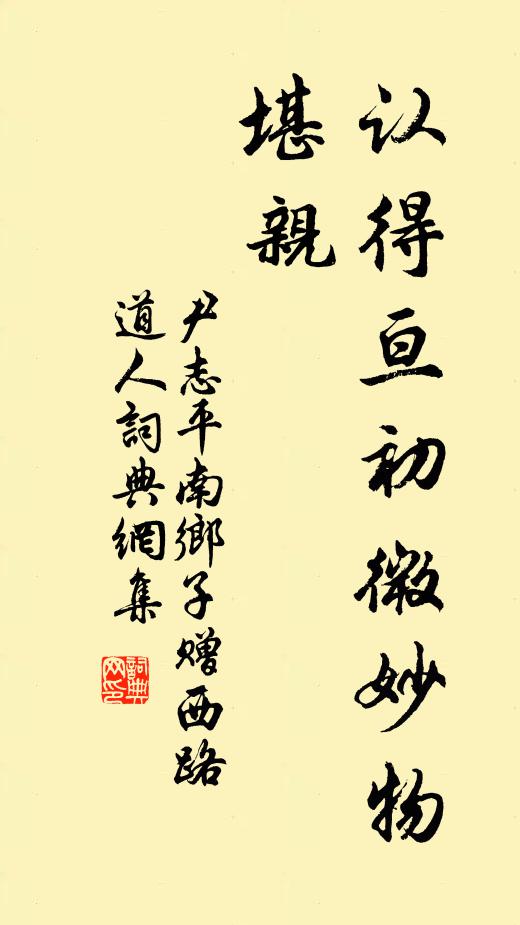 认得亘初微妙物
堪親
尹志平南鄉子赠西路
道人詞典網集
詞典
网印